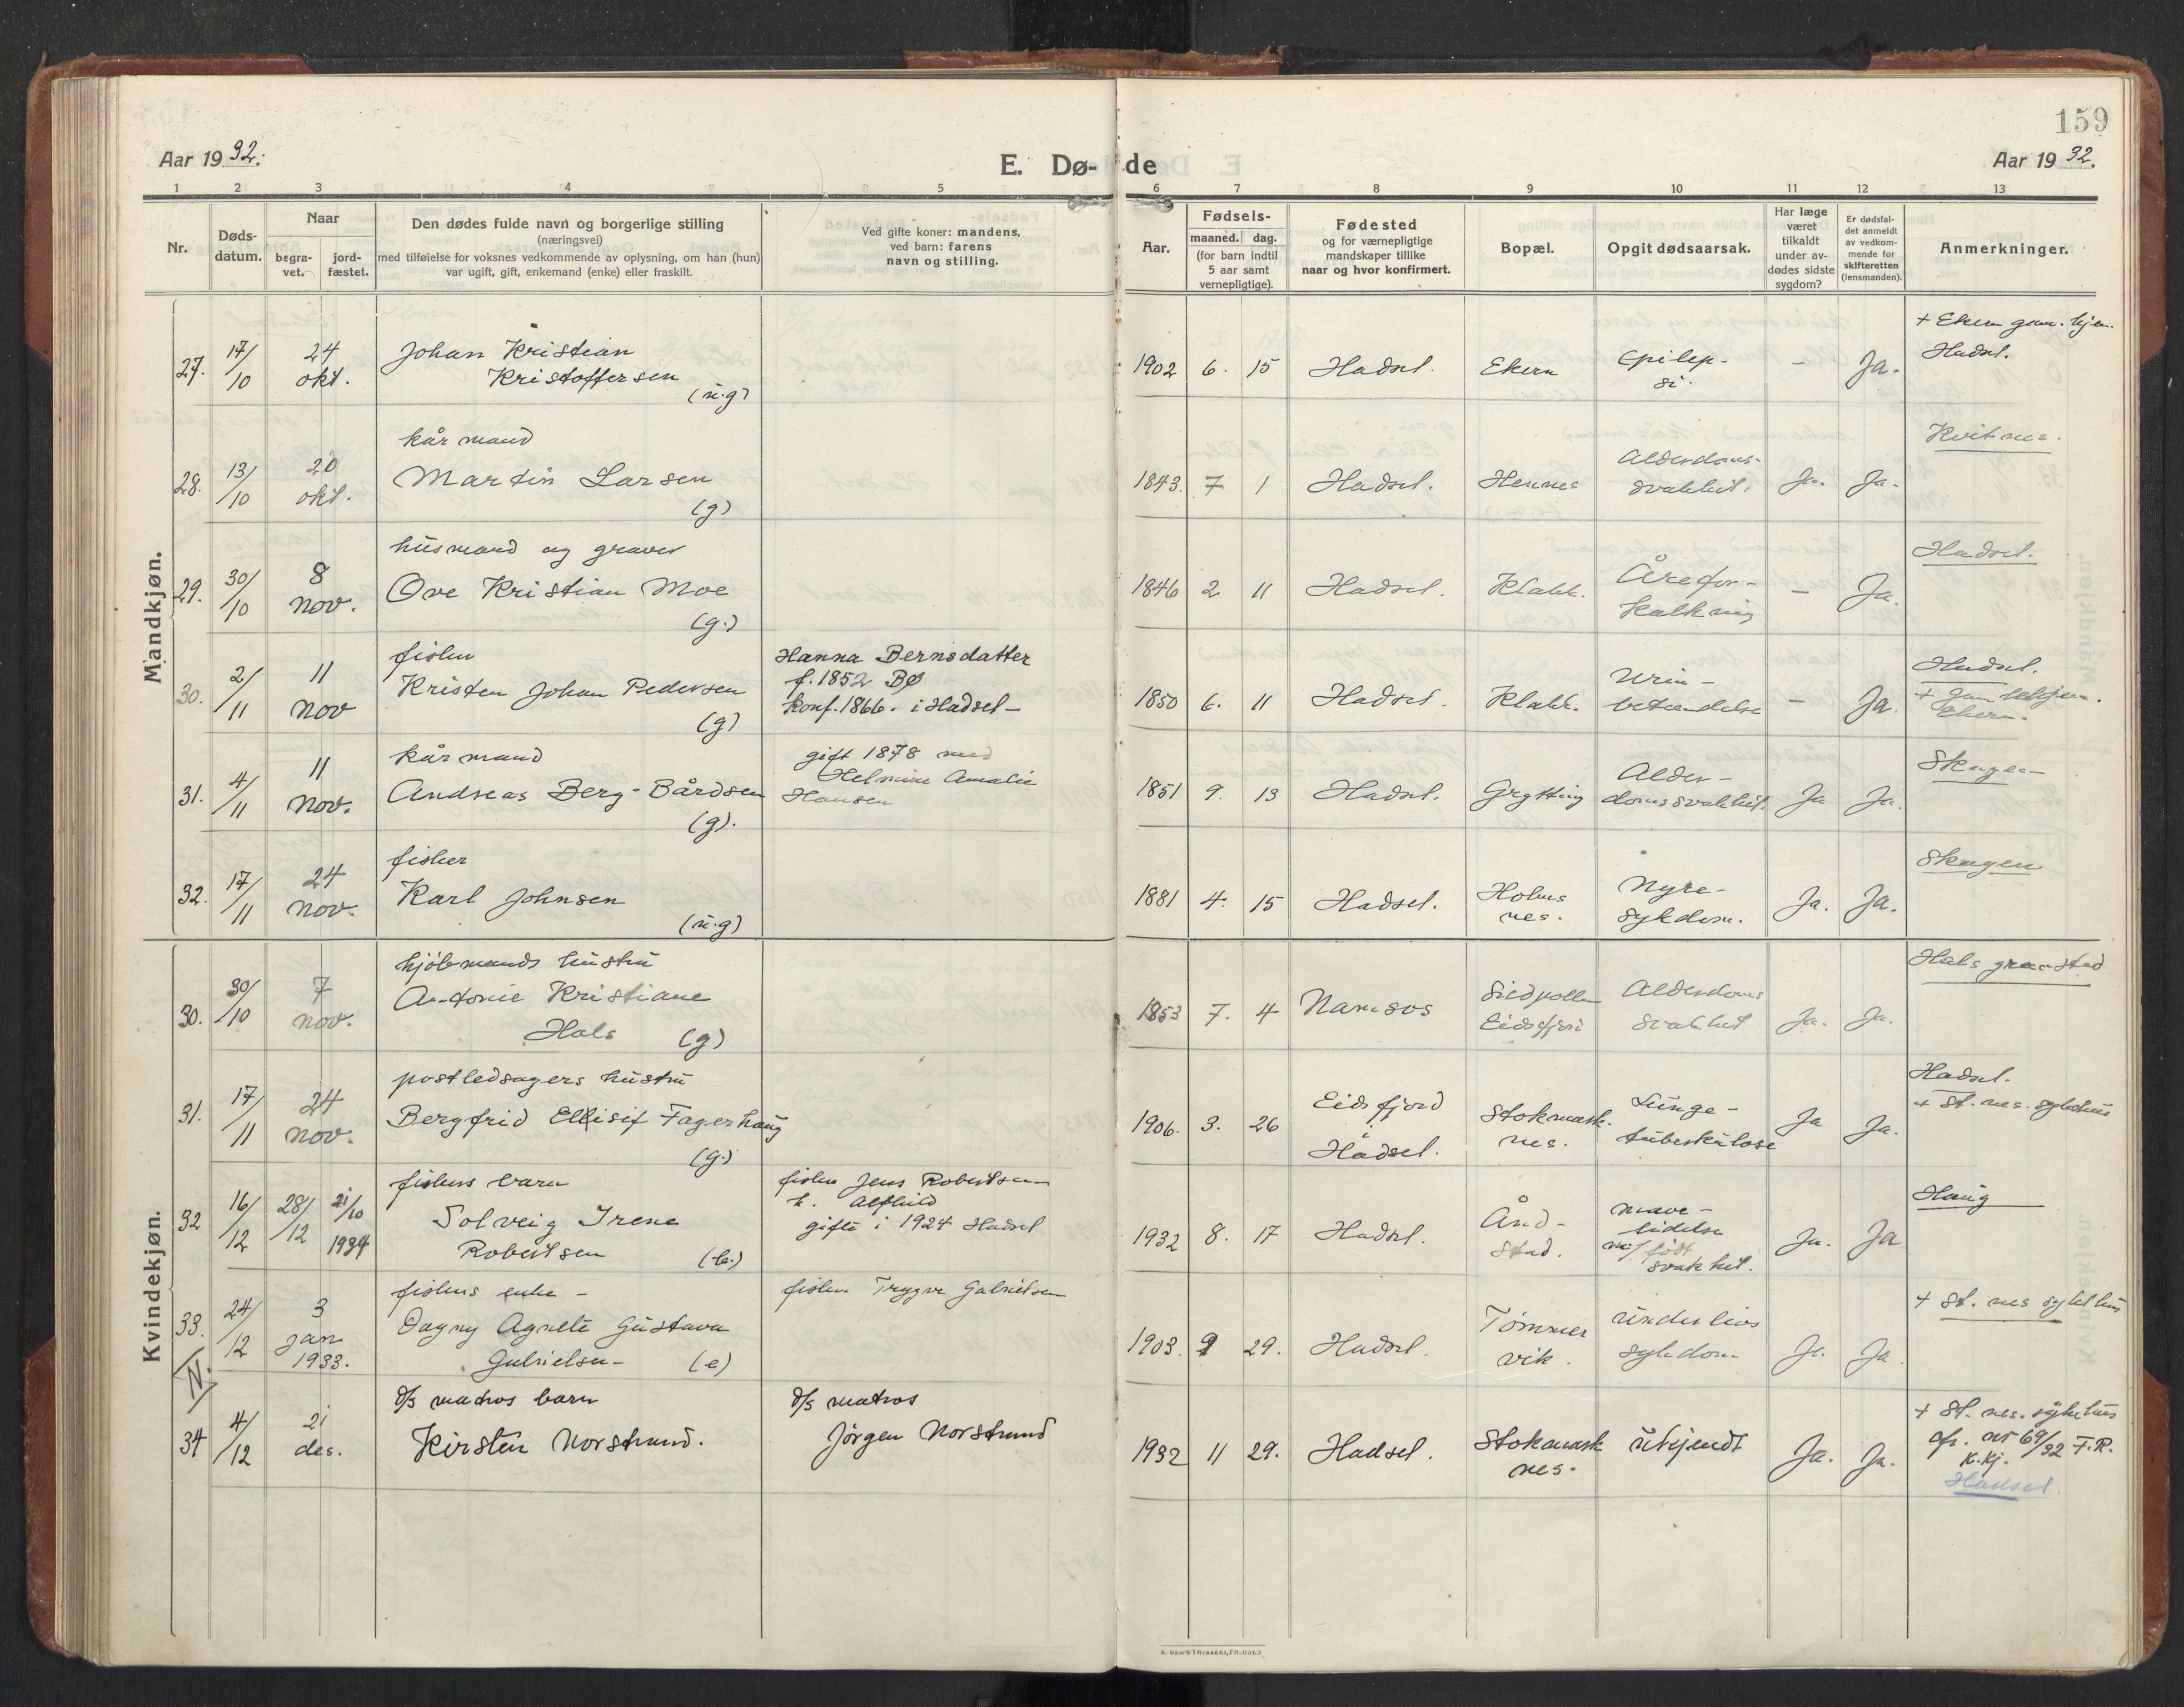 159
Aar 1932.
E. Dø-de
Aar 1932.
1 2 3 4 5 6 7 8 9 10 11 12 13
Nr.
Døds-
datum.
Naar
begra-
vet.
jord-
fæstet.
Den dødes fulde navn og borgerlige stilling
(næringsvei)
med tilføielse for voksnes vedkommende av oplysning, om han (hun)
var ugift, gift, enkemand (enke) eller fraskilt.
Ved gifte koner: mandens,
ved barn: farens
navn og stilling.
Aar.
Fødsels-
maaned. dag.
(for barn indtil
5 aar samt
vernepligtige).
Fødested
og for værnepligtige
mandskaper tillike
naar og hvor konfirmert.
Bopæl.
Opgit dødsaarsak.
Har læge
været
tilkaldt
under av-
dødes sidste
sygdom?
Er dødsfal-
det anmeldt
av vedkom-
mende for
skifteretten
(lensmanden).
Anmerkninger.
Mandkjøn.
27.
17/10
24
okt.
Johan Kristian
Kristoffersen
(u.g)
1902 6. 15 Hadsel. Ekern
Epilep-
si.
- Ja.
+ Ekern gam.hjem.
Hadsel.
28.
13/10
20
okt.
kårmand
Martin Larsen
(g)
1843. 7 1 Hadsel. Hennes
Alderdoms-
svakhet.
Ja. Ja.
Kvitnes.
29.
30/10
8
nov.
husmand og graver
Ove Kristian Moe
(g.)
1846 2 11 Hadsel. Klakk.
Årefor-
kalkning
- Ja.
Hadsel.
30.
2/11
11
nov
fisker
Kristen Johan Pedersen
(g)
Hanna Bernsdatter
f. 1852 BØ
konf. 1866. i Hadsel-
1850 6. 11 Hadsel. Klakk.
Urin-
betændelse
- Ja.
Hadsel.
Ekern.
31.
4/11
11
nov.
kårmand
Andreas Berg-Bårdsen
(g).
gift 1878 med
Helmine Amalie
Hansen
1851 9. 13 Hadsel. Grytting
Alder-
domssvakhet.
Ja Ja.
Skagen
32.
17/11
24
nov.
fisker
Karl Johnsen
(u.g)
1881 4. 15 Hadsel.
Holms
nes.
Nyre-
sykdom.
Ja. Ja.
Skagen
Kvindekjøn.
30.
30/10
7
nov.
kjøbmands hustru
Antonie Kristiane
Hals (g)
1853 7. 4 Namsos
Sildpollen
Eidsfjord
Alderdoms
svakhet
Ja. Ja.
Hals gravsted
31.
17/11
24
nov.
postledsagers hustru
Bergfrid Ellisif Fagerhaug
(g.)
1906. 3. 26
Eidsfjord
i
Hadsel.
Stokmark-
nes.
Lunge-
tuberkulose
Ja Ja.
Hadsel.
+ St. nes. sykehus
32
16/12
28/12
21/10
1934
fiskers barn
Solveig Irene
Robertsen (b.)
fisker Jens Robertsen
h. Alfhild
gifte i 1924 Hadsel
1932 8. 17 Hadsel.
Ånd-
stad.
mave-
lidelse
m/ født
svakhet.
Ja. Ja
Haug
33.
24/12
3
jan
1933.
fiskers enke -
Dagny Agnete Gustava
Gabrielsen - (e)
fisker Trygve Gabrielsen
1903. 9 29. Hadsel.
Tømmer
vik.
underlivs
sykdom
Ja. Ja
+ St. nes sykehus
N.
34
4/12
21
des.
d/s matros barn
Kirsten Norstrand.
d/s matros
Jørgen Norstrand
1932 11 29. Hadsel.
Stokmark
nes.
ukjendt
Ja. Ja.
+ St. nes. sykehus
cfr. nr 69/32 F.R.
K.kj.
Hadsel.